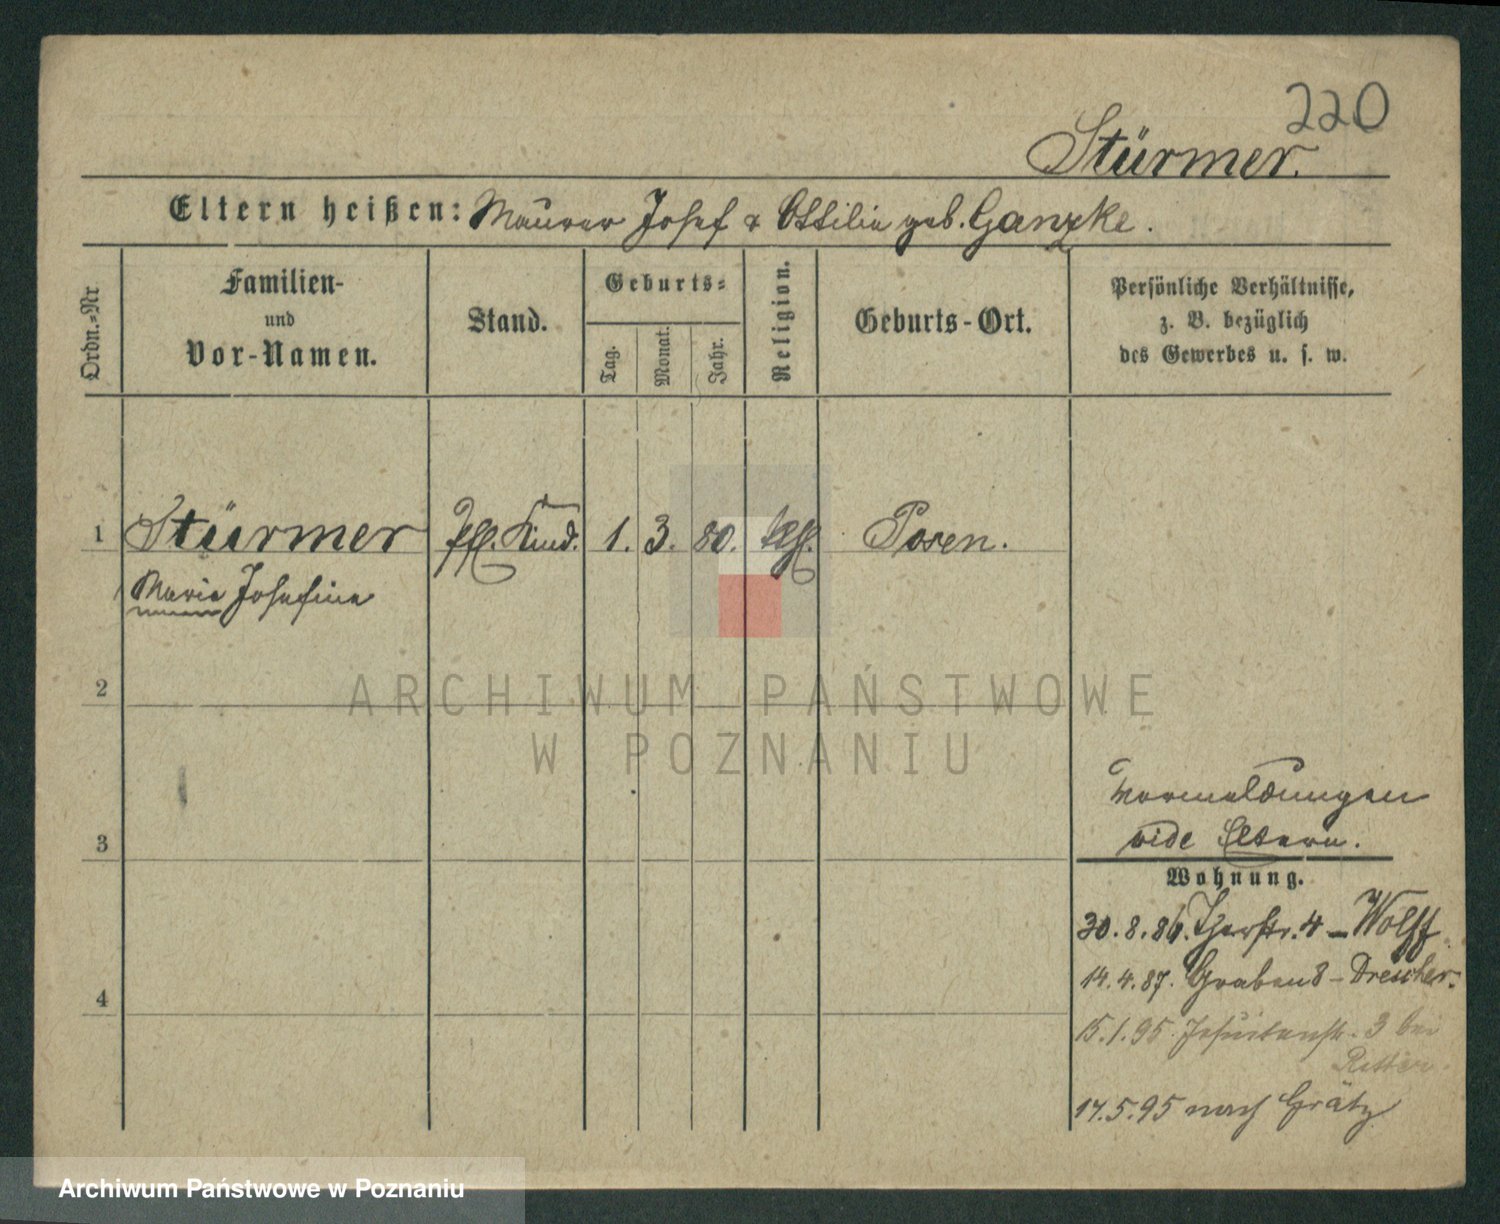 220
Stürmer.
Eltern heißen: Maurer Josef & Ottilie geb. Ganzke.
Ordn.-Nr
Familien-
und
Vor-Namen.
Stand.
Geburts-
Tag.
Monat.
Jahr.
Religion.
Geburts-Ort.
Persönliche Verhältnisse,
z. B. bezüglich
des Gewerbes u. s. w.
1 Stürmer Pfl. Kind. 1. 3. 80. kth. Posen.
Marie Josefine
2
ARCHIWUM PAŃSTWOWE
W POZNANIU
Vormeldungen
vide Eltern.
3
Wohnung.
30.8.86. 4 – Wolff
14.4.87. Graben 8 – Drescher.
4
15.1.95. Jesuitenstr. 3 bei
Ritter.
17.5.95 nach Grätz
Archiwum Państwowe w Poznaniu